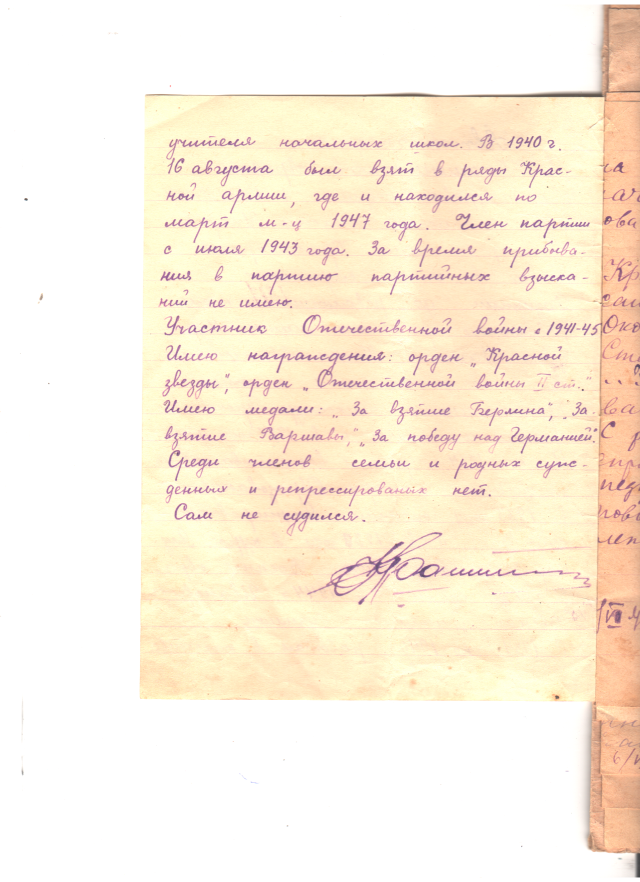 учителя начальных школ. В 1940 г.
16 августа был взят в ряды Крас-
ной армии, где и находился по
март м-ц 1947 года. Член партии
с июля 1943 года. За время прибыва-
ния в партию партийных взыска-
ний не имею.
Участник Отечественной войны с 1941-45
Имею награждения: орден „Красной
звезды", орден „Отечественной войны II ст."
Имею медали: „За взятие Берлина", „За
взятие Варшавы", „За победу над Германией".
Среди членов семьи и родных суж-
денных и репрессированых нет.
Сам не судился.